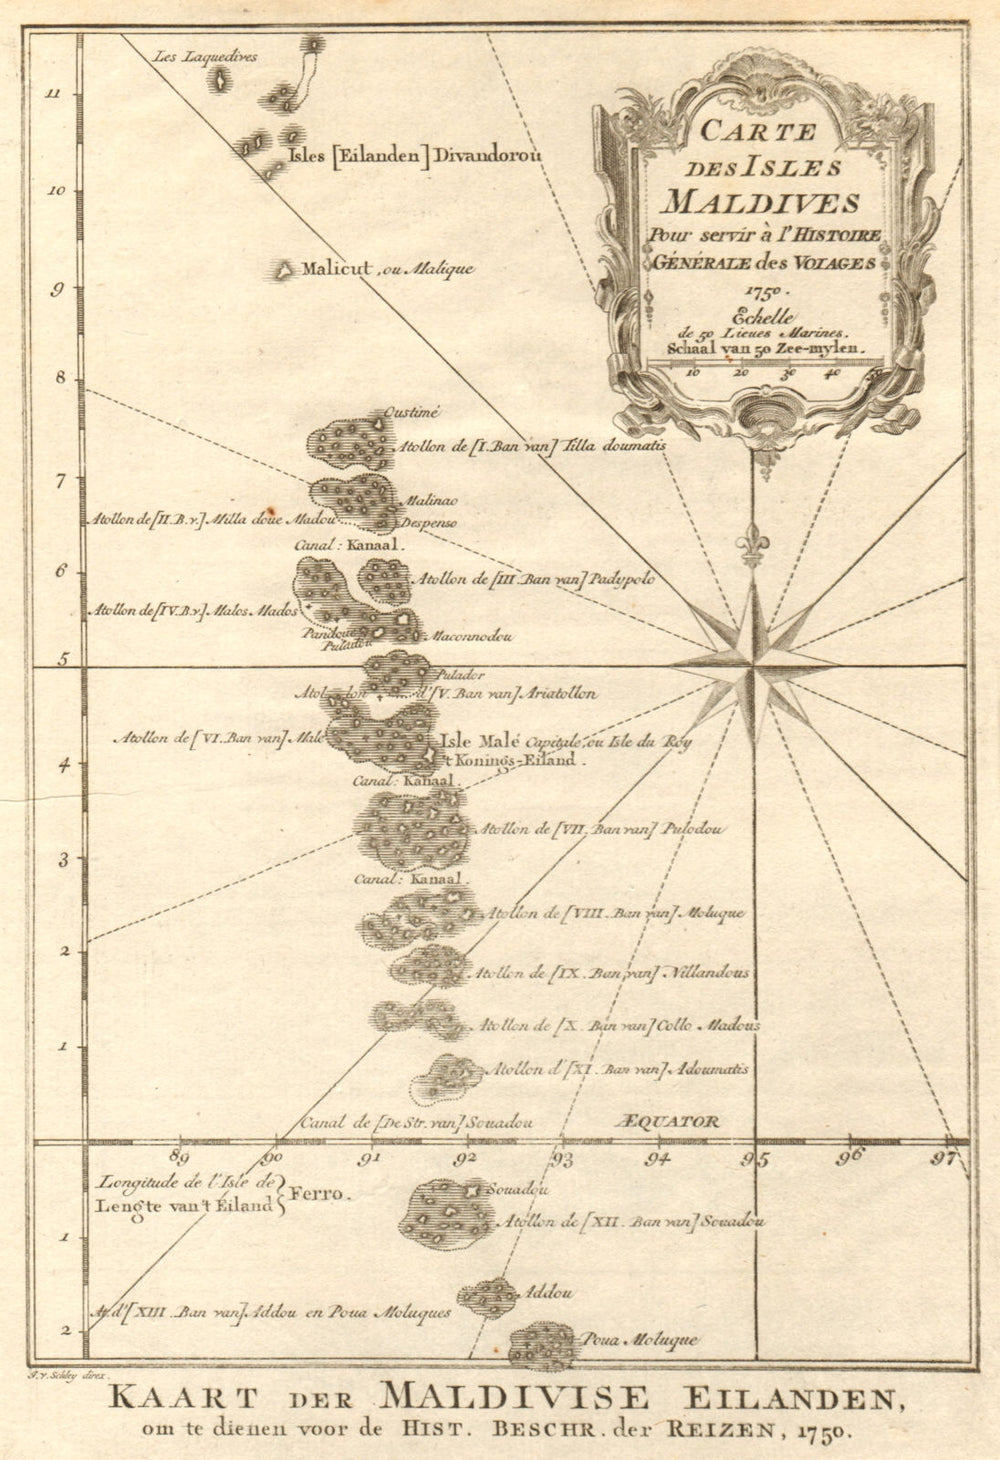 Les Laquedives
11
Isles [Eilanden] Divandorou
10
Malicut, ou Malique
9
CARTE
DES ISLES
MALDIVES
Pour servir à l'HISTOIRE
GÉNÉRALE des VOIAGES
1750.
Echelle
de 50 Lieues Marines.
Schaal van 50 Zee-mylen.
10 20 30 40 50
8
Oustimé
Atollon de [I. Ban van] Tilla doumatis
7
Malinao
Atollon de [II. B.v.] Milla doue Madou
Despenso
Canal: Kanaal.
6
Atollon de [III. Ban van] Padypolo
Atollon de [IV. B.v.] Malos Mados
Pandoue
Puladou
Maconnodou
5
Pulador
Atollon d'[V. Ban van] Ariatollon
Atollon de [VI. Ban van] Malé
Isle Malé Capitale, ou Isle du Roy
't Konings-Eiland.
4
Canal: Kanaal.
Atollon de [VII. Ban van] Pulodou
3
Canal: Kanaal.
Atollon de [VIII. Ban van] Moluque
2
Atollon de [IX. Ban van] Nillandous
Atollon de [X. Ban van] Collo Madous
1
Atollon d'[XI. Ban van] Adoumatis
Canal de [De Str. van] Souadou
ÆQUATOR
89 90 91 92 93 94 95 96 97
Longitude de l'Isle de
Lengte van't Eiland
Ferro.
Souadou
Atollon de [XII. Ban van] Souadou
1
Addou
At. d'[XIII. Ban van] Addou en Poua Moluques
2
Poua Moluque
J.v. Schley direx.
KAART DER MALDIVISE EILANDEN,
om te dienen voor de HIST. BESCHR. der REIZEN, 1750.